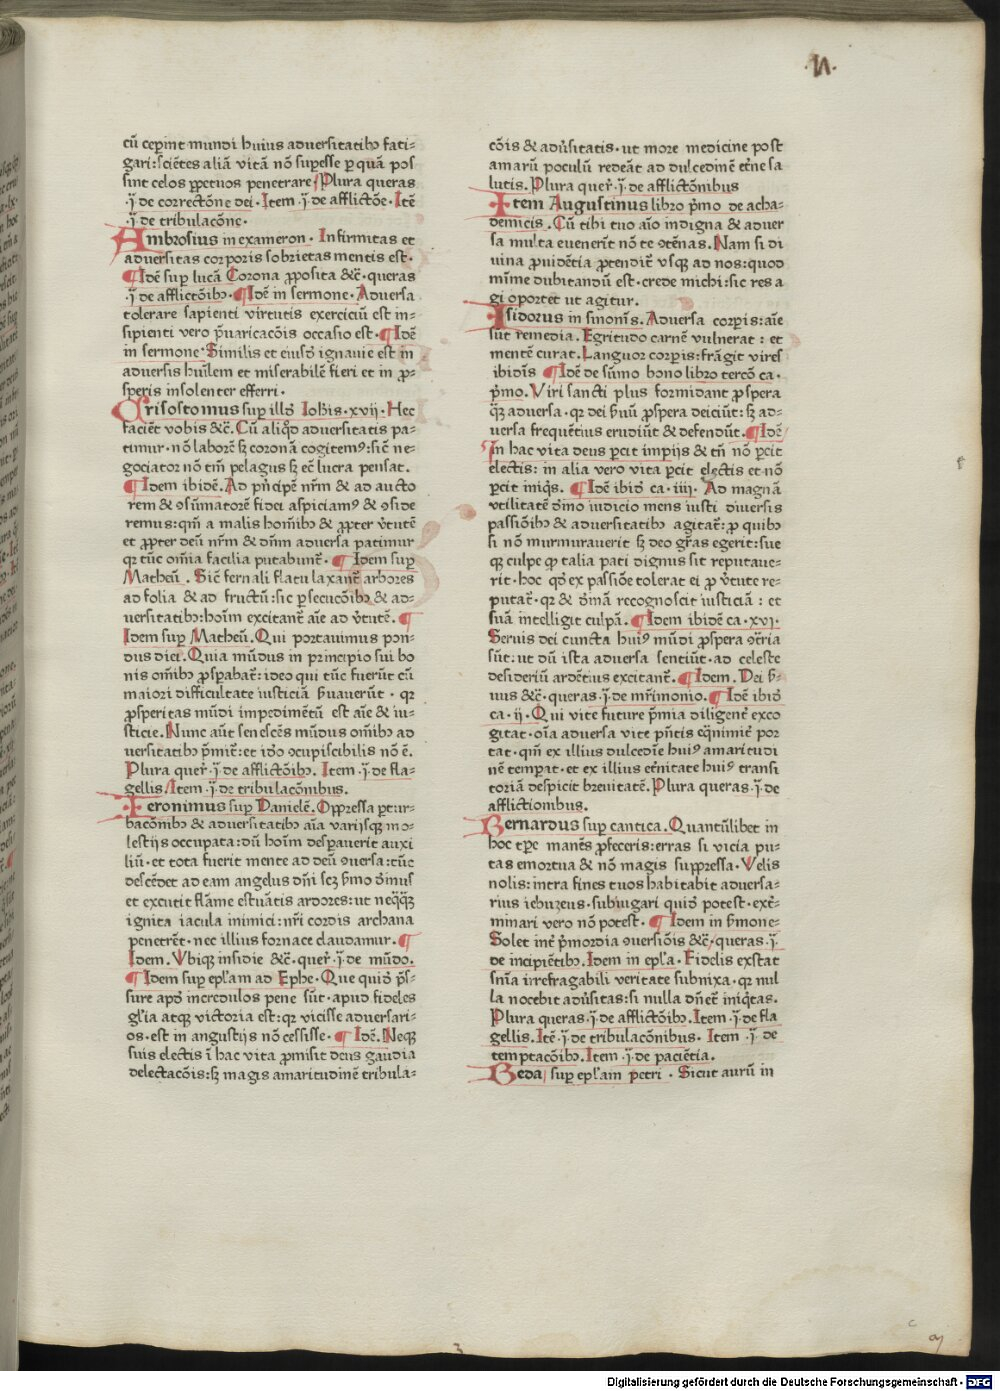 ·n·
cū ceperint mundi huius aduersitatibꝫ fati-
gari: sciētes aliā vitā nō supesse ꝑ quā pos
sint celos ꝑpetuos penetrare Plura queras
·ij· de correctōne dei · Item ·ij· de afflictōe · Itē
·ij· de tribulacōne ·
Ambrosius in exameron · Infirmitas et
aduersitas corporis sobrietas mentis est ·
¶ Idē suꝑ lucā Corona ꝓposita &c̄ · queras
·ij· de afflictōibꝫ · ¶ Idē in sermone · Aduersa
tolerare sapienti virtutis exerciciū est in-
sipienti vero p̄uaricacōis occasio est · ¶ Idē
in sermone · Similis et eiusdē ignauie est in
aduersis huīlem et miserabilē fieri et in ꝓ-
speris insolenter efferri ·
Crisostomus suꝑ illḋ Ioh̄is · xvij · Hec
faciēt vobis &c̄. Cū aliqḋ aduersitatis pa-
timur · nō laborē sꝫ coronā cogitemꝰ: sic̄ ne-
gociator nō tm̄ pelagus sꝫ ec̄ lucra pensat.
¶ Idem ibidē. Ad p̄ncipē nr̄m & ad aucto
rem & ꝯsūmatorē fidei aspiciamꝰ & ꝯside
remus: qm̄ a malis hom̄ibꝫ & ꝓpter v̄tutē
et ꝓpter deū nr̄m & dn̄m aduersa patimur
qꝛ tūc om̄ia facilia putabunt̄ · ¶ Idem suꝑ
Matheū . Sic̄ fernali flatu laxant̄ arbores
ad folia & ad fructū: sic ꝑsecucōibꝫ & ad-
uersitatibꝫ: hoīm excitant̄ aīe ad v̄tutē · ¶
Idem suꝑ Matheū. Qui portauimus pon-
dus diei. Quia mūdus in principio sui bo
nis om̄ibꝫ ꝓsꝑabat̄: ideo qui tūc fuerūt cū
maiori difficultate iusticiā ẜuauerūt · qꝛ
ꝓsperitas mūdi impedimētū est aīe & iu-
sticie. Nunc aūt senescēs mūdus om̄ibꝫ ad
uersitatibꝫ p̄mit̄: et idō ꝯcupiscibilis nō ē.
Plura quer̄ ·ij· de afflictōibꝫ. Item ·ij· de fla-
gellis Item ·ij· de tribulacōnibus.
Ieronimus suꝑ Danielē. Oppressa ꝑtur-
bacōnibꝫ & aduersitatibꝫ aīa varijsqꝫ mo-
lestijs occupata: dū hoīm desꝑauerit auxi
liū · et tota fuerit mente ad deū ꝯuersa: tūc
descēdet ad eam angelus dn̄i scꝫ ẜmo d̄inus
et excutit flāme estuātis ardores: ut neq̄qꝫ
ignita iacula inimici: nr̄i cordis archana
penetrēt · nec illius fornace claudamur · ¶
Idem. Vbiqꝫ insidie &c̄ · quer̄ ·ij· de mūdo.
¶ Idem suꝑ epl̄am ad Ephe · Que quidē p̄s-
sure apḋ incredulos pene sūt · apud fideles
gl̄ia atqꝫ victoria est: qꝛ vicisse aduersari-
os · est in angustijs nō cessisse · ¶ Idē. Neqꝫ
suis electis ī hac vita ꝓmisit deus gaudia
delectacōis: sꝫ magis amaritudinē tribula-
cōis & adu̓sitatis · ut more medicine post
amarū poculū redeāt ad dulcedinē et̄ne sa
lutis. Plura quer̄ ·ij· de afflictōnibus
Item Augustinus libro p̄mo de acha-
demicis . Cū tibi tuo aīo indigna & aduer
sa multa euenerīt nō te ꝯtēnas. Nam si di
uina ꝓuidētia ꝓtendit̄ vsqꝫ ad nos: quod
mīme dubitandū est · crede michi: sic res a
gi oportet ut agitur.
Isidorus in sinonīs. Aduersa corꝑis: aīe
sūt remedia. Egritudo carnē vulnerat : et
mentē curat. Languor corꝑis: frāgit vires
ibidīs ¶ Idē de sūmo bono libro tercō ca ·
p̄mo. Viri sancti plus formidant ꝓspera
q̄ꝫ aduersa · qꝛ dei ẜuū ꝓspera deiciūt: sꝫ ad-
uersa frequētius erudiūt & defendūt. ¶ Idē
In hac vita deus ꝑcit impijs & tn̄ nō ꝑcit
electis: in alia vero vita ꝑcit electis et nō
ꝑcit iniqs. ¶ Idē ibidē ca · iiij · Ad magnā
vtilitatē d̄ino iudicio mens iusti diuersis
passiōibꝫ & aduersitatibꝫ agitat̄: ꝓ quibꝫ
si nō murmurauerit sꝫ deo gr̄as egerit: sue
qꝫ culpe qꝫ talia pati dignus sit reputaue-
rit · hoc qḋ ex passiōe tolerat ei ꝓ v̄tute re-
putat̄ · qꝛ & d̄inā recognoscit iusticiā : et
suā intelligit culpā. ¶ Idem ibidē ca · xvi ·
Seruis dei cuncta huiꝰ mūdi ꝓspera ꝯt̄ria
sūt: ut dū ista aduersa sentiūt · ad celeste
desideriū ardētius excitant̄. ¶ Idem. Dei ẜ-
uus &c̄ · queras ·ij· de mr̄imonio. ¶ Idē ibidē
ca · ij · Qui vite future p̄mia diligent̄ exco
gitat · oīa aduersa vite p̄ntis eq̄nimit̄ por
tat · qm̄ ex illius dulcedīe huiꝰ amaritudi
nē temꝑat · et ex illius et̄nitate huiꝰ transi
toriā despicit breuitatē. Plura queras ·ij· de
afflictionibus.
Bernardus suꝑ cantica. Quantūlibet in
hoc cor̄pe manēs ꝓfeceris: erras si vicia pu-
tas emortua & nō magis suppressa · Velis
nolis: intra fines tuos habitabit aduersa-
rius iebuzeus · subiugari quidē potest · ext̄-
minari vero nō potest · ¶ Idem in ẜmone ·
Solet int̄ p̄mordia ꝯuersiōis &c̄ · queras ·ij·
de incipiētibꝫ. Idem in epl̄a · Fidelis exstat
sn̄ia irrefragabili veritate subnixa · qꝛ nul
la nocebit adu̓sitas: si nulla dn̄et̄ iniq̄tas.
Plura queras ·ij· de afflictōibꝫ. Item ·ij· de fla
gellis. Itē ·ij· de tribulacōnibus. Item ·ij· de
temptacōibꝫ. Item ·ij· de paciētia.
Beda suꝑ epl̄am petri · Sicut aurū in
Digitalisierung gefördert durch die Deutsche Forschungsgemeinschaft - DFG